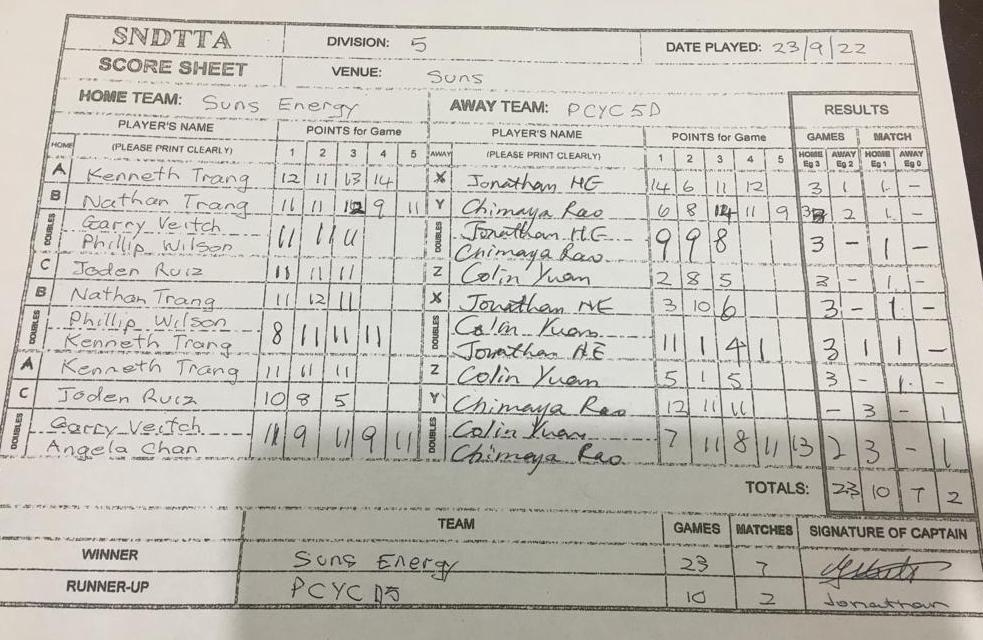 SNDTTA DIVISION: 5 DATE PLAYED: 23/9/22
SCORE SHEET VENUE: Suns
HOME TEAM: Suns Energy AWAY TEAM: PCYC5D RESULTS
PLAYER'S NAME POINTS for Game PLAYER'S NAME POINTS for Game GAMES MATCH
HOME (PLEASE PRINT CLEARLY) 1 2 3 4 5 AWAY (PLEASE PRINT CLEARLY) 1 2 3 4 5 HOME Eg 3 AWAY Eg 2 HOME Eg 1 AWAY Eg 0
A Kenneth Trang 12 11 13 14 X Jonathan HE 14 6 11 12 3 1 1 -
B Nathan Trang 11 11 12 9 11 Y Chimaya Rao 6 8 14 11 9 3 2 1 -
DOUBLES Garry Veitch Jonathan H.E
Phillip Wilson 11 11 11 DOUBLES Chimaya Rao 9 9 8 3 - 1 -
C Joden Ruiz 11 11 11 Z Colin Yuan 2 8 5 3 - 1 -
B Nathan Trang 11 12 11 X Jonathan HE 3 10 6 3 - 1 -
DOUBLES Phillip Wilson Colin Yuan
Kenneth Trang 8 11 11 11 DOUBLES Jonathan H.E 11 1 4 1 3 1 1 -
A Kenneth Trang 11 11 11 Z Colin Yuan 5 1 5 3 - 1 -
C Joden Ruiz 10 8 5 Y Chimaya Rao 12 11 11 - 3 - 1
DOUBLES Garry Veitch Colin Yuan
Angela Chan 11 9 11 9 11 DOUBLES Chimaya Rao 7 11 8 11 13 2 3 - 1
TOTALS: 23 10 7 2
TEAM GAMES MATCHES SIGNATURE OF CAPTAIN
WINNER Suns Energy 23 7
RUNNER-UP PCYC D5 10 2 Jonathan